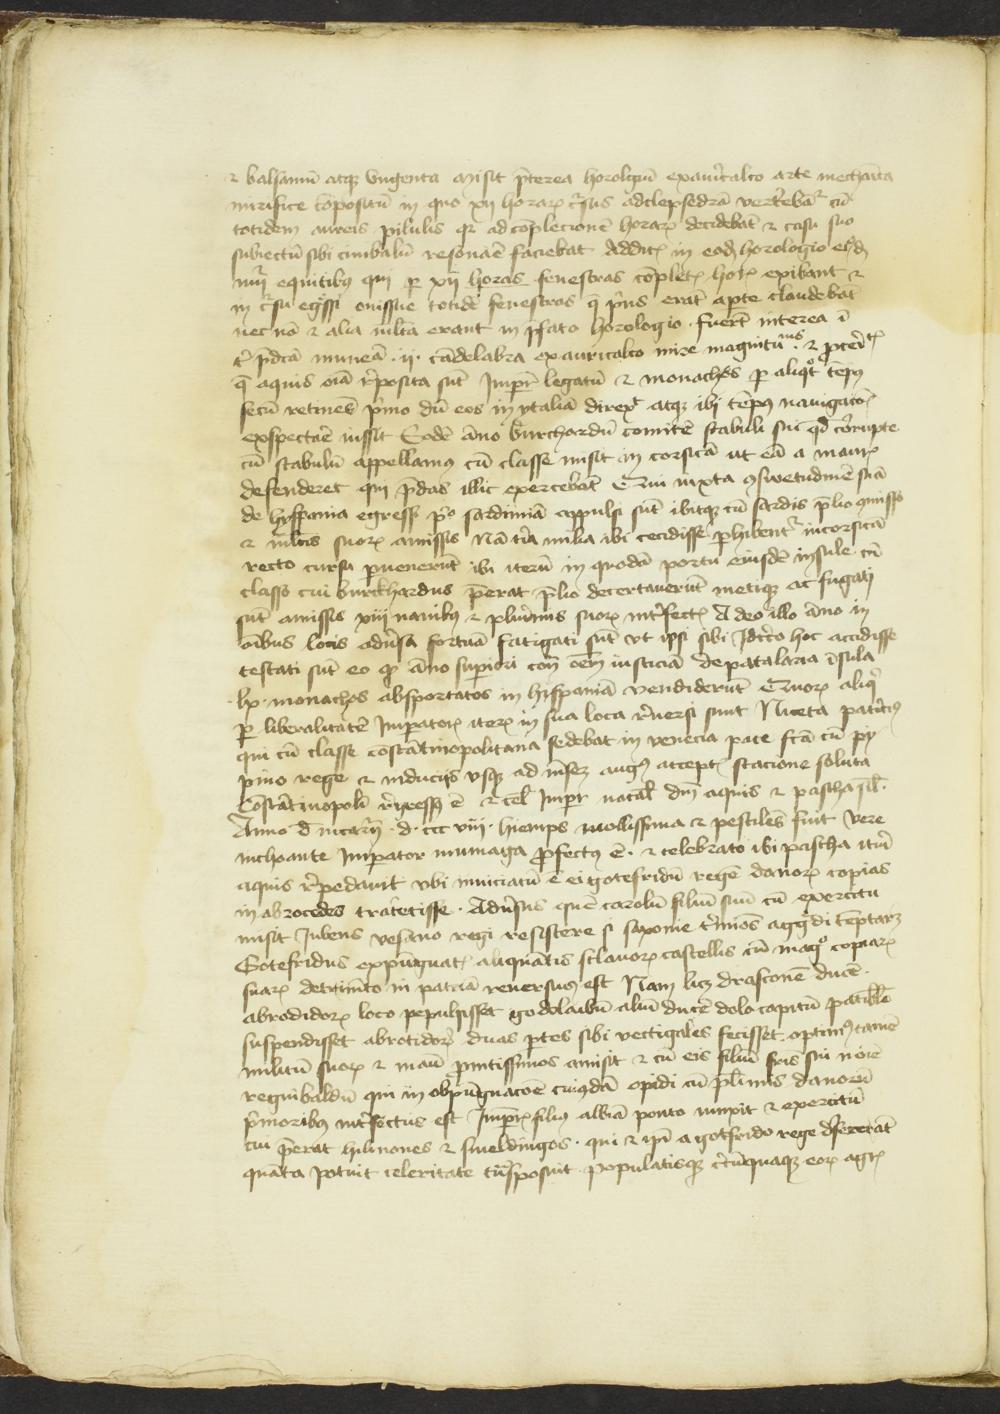 ⁊ balsamū atqꝫ vngenta misit p̄terea horologiū ex auricalco arte mechanica
mirifice cōpositū in quo xij horaꝝ cursus ad clepsedrā verteba͛t cū
totidem aureis pilulis q ad cōplecionē horaꝝ decidebāt ⁊ casu suo
subiectū sibi cimbalū resonare faciebāt Additis in eodē horologio eiꝰdē
nūi equitibus qui ꝑ xij horas fenestras cōpletis horis exibant ⁊
in cursu egressi onissue totidē fenestras q̄ priꝰ erāt aperte claudebāt
nec nō ⁊ alia multa erant in p̄fato horologio . fuerūt interea ī
p̄dicta munera .ij. cādelabra ex auricalco mire magnitudinis ⁊
q̄ aquis oīa reposita sūt Impr legatū ⁊ monachos ꝑ aliqꝰt tēpꝰ
secū retinēs primo dū eos in ytaliā direxit atqꝫ ibi tēpꝰ nauigatoīs
exspectare iussit Eodē āno burchardū comitē stabuli sui qd corrupte
cū stabulū appellamꝰ cū classe misit in corsicā ut eā a mauris
defenderet qui p̄das illic exercebāt Qui iuxta ꝯswetudinē suā
de hyspania egressi pᵒ sardiniā appulsi sūt ibiqꝫ cū sardis p̄lio ꝯmisso
⁊ multis suoꝝ amissis Nā tria milia ibi cecidisse ꝑhibent᷑ in corsicā
recto cursu ꝑuenerūt ibi iterū in quodā portu eiusdē insule cū
classo cui burckhardus p̄erat p̄lio decertauerūt metiqꝫ ac fugati
sūt amissis xiij nauibꝰ ⁊ plurimis suoꝝ interfectis Adeo illo āno in
oībus locis aduersa fortuā fatigati sūt vt ipsi sibi Idcirco hoc accidisse
testati sūt eo ꝙ āno superiori contra oēm iusticiā de patalaria īsula
lx monachos absportatos in hispaniā vendiderūt Quoꝝ aliqͥ
ꝑ liberalitatē Imperatoris iteꝝ in sua loca reuersi sunt Niceta patriciꝰ
qui cū classe costātinopolitana sedebat in venecia pace fcā cū py
pino rege ⁊ inducijs vsqꝫ ad mēsem augᵗⁱ acceptis stacione soluta
Costātinopolī regressꝰ ē ⁊ cel Impr natal dnī aquis ⁊ pascha sil.
Anno d incarn . d . ccc viij . hiemps mollissima ⁊ pestilēs fuit Vere
inchoante Imperator numaga ꝓfectꝰ ē . ⁊ celebrato ibi pascha iterū
aquis repedauit vbi nunciatū ē ei gotefridū regē danoꝝ copias
in abrocedes traiecisse . Aduersus quē carolū filiū suū cū exercitu
misit Iubens vesano regi resistere si saxonie terminos aggredi tēptaret
Gotefridus expugnatis aliquātis sclauoꝝ castellis cū magͦ copiarꝝ
suarꝝ detrimēto in patriā reuersus est Nam licꝫ drasconē ducē
abrodidoꝝ loco pepulisset godolaibū aliū ducē dolo captū patibulo
suspendisset abrotidorꝝ duas ptes sibi vectigales fecisset optimꝰ tamē
militū suorꝝ ⁊ manū promtissimos amisit ⁊ cū eis filiū fris sui noīe
reginbaldū qui in obpūgnacoē cuiusdā opidi cū plimis danorū
primoribus interfectus est Impris filius albiā ponto iunxit ⁊ exercitū
cui p̄erat hilinones ⁊ smeldingos . qui ⁊ ipi a gotfrido rege defecerāt
quāta potuit celeritate trāsposuit populatisqꝫ circūquaqꝫ eoꝝ agris